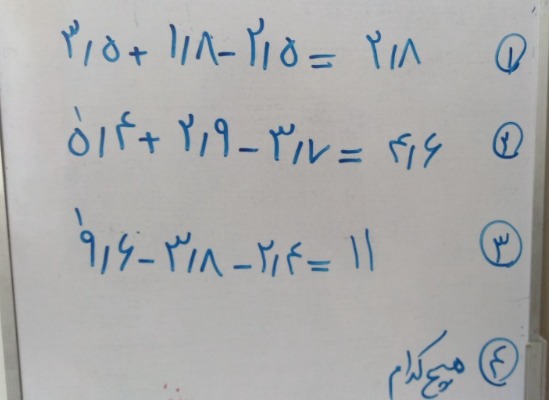 ① ۳٫۵ + ۱٫۸ - ۲٫۵ = ۲٫۸
② ۵٫۴ + ۲٫۹ - ۳٫۷ = ۴٫۶
③ ۹٫۶ - ۳٫۸ - ۲٫۴ = ۱۱
④ هیچ کدام